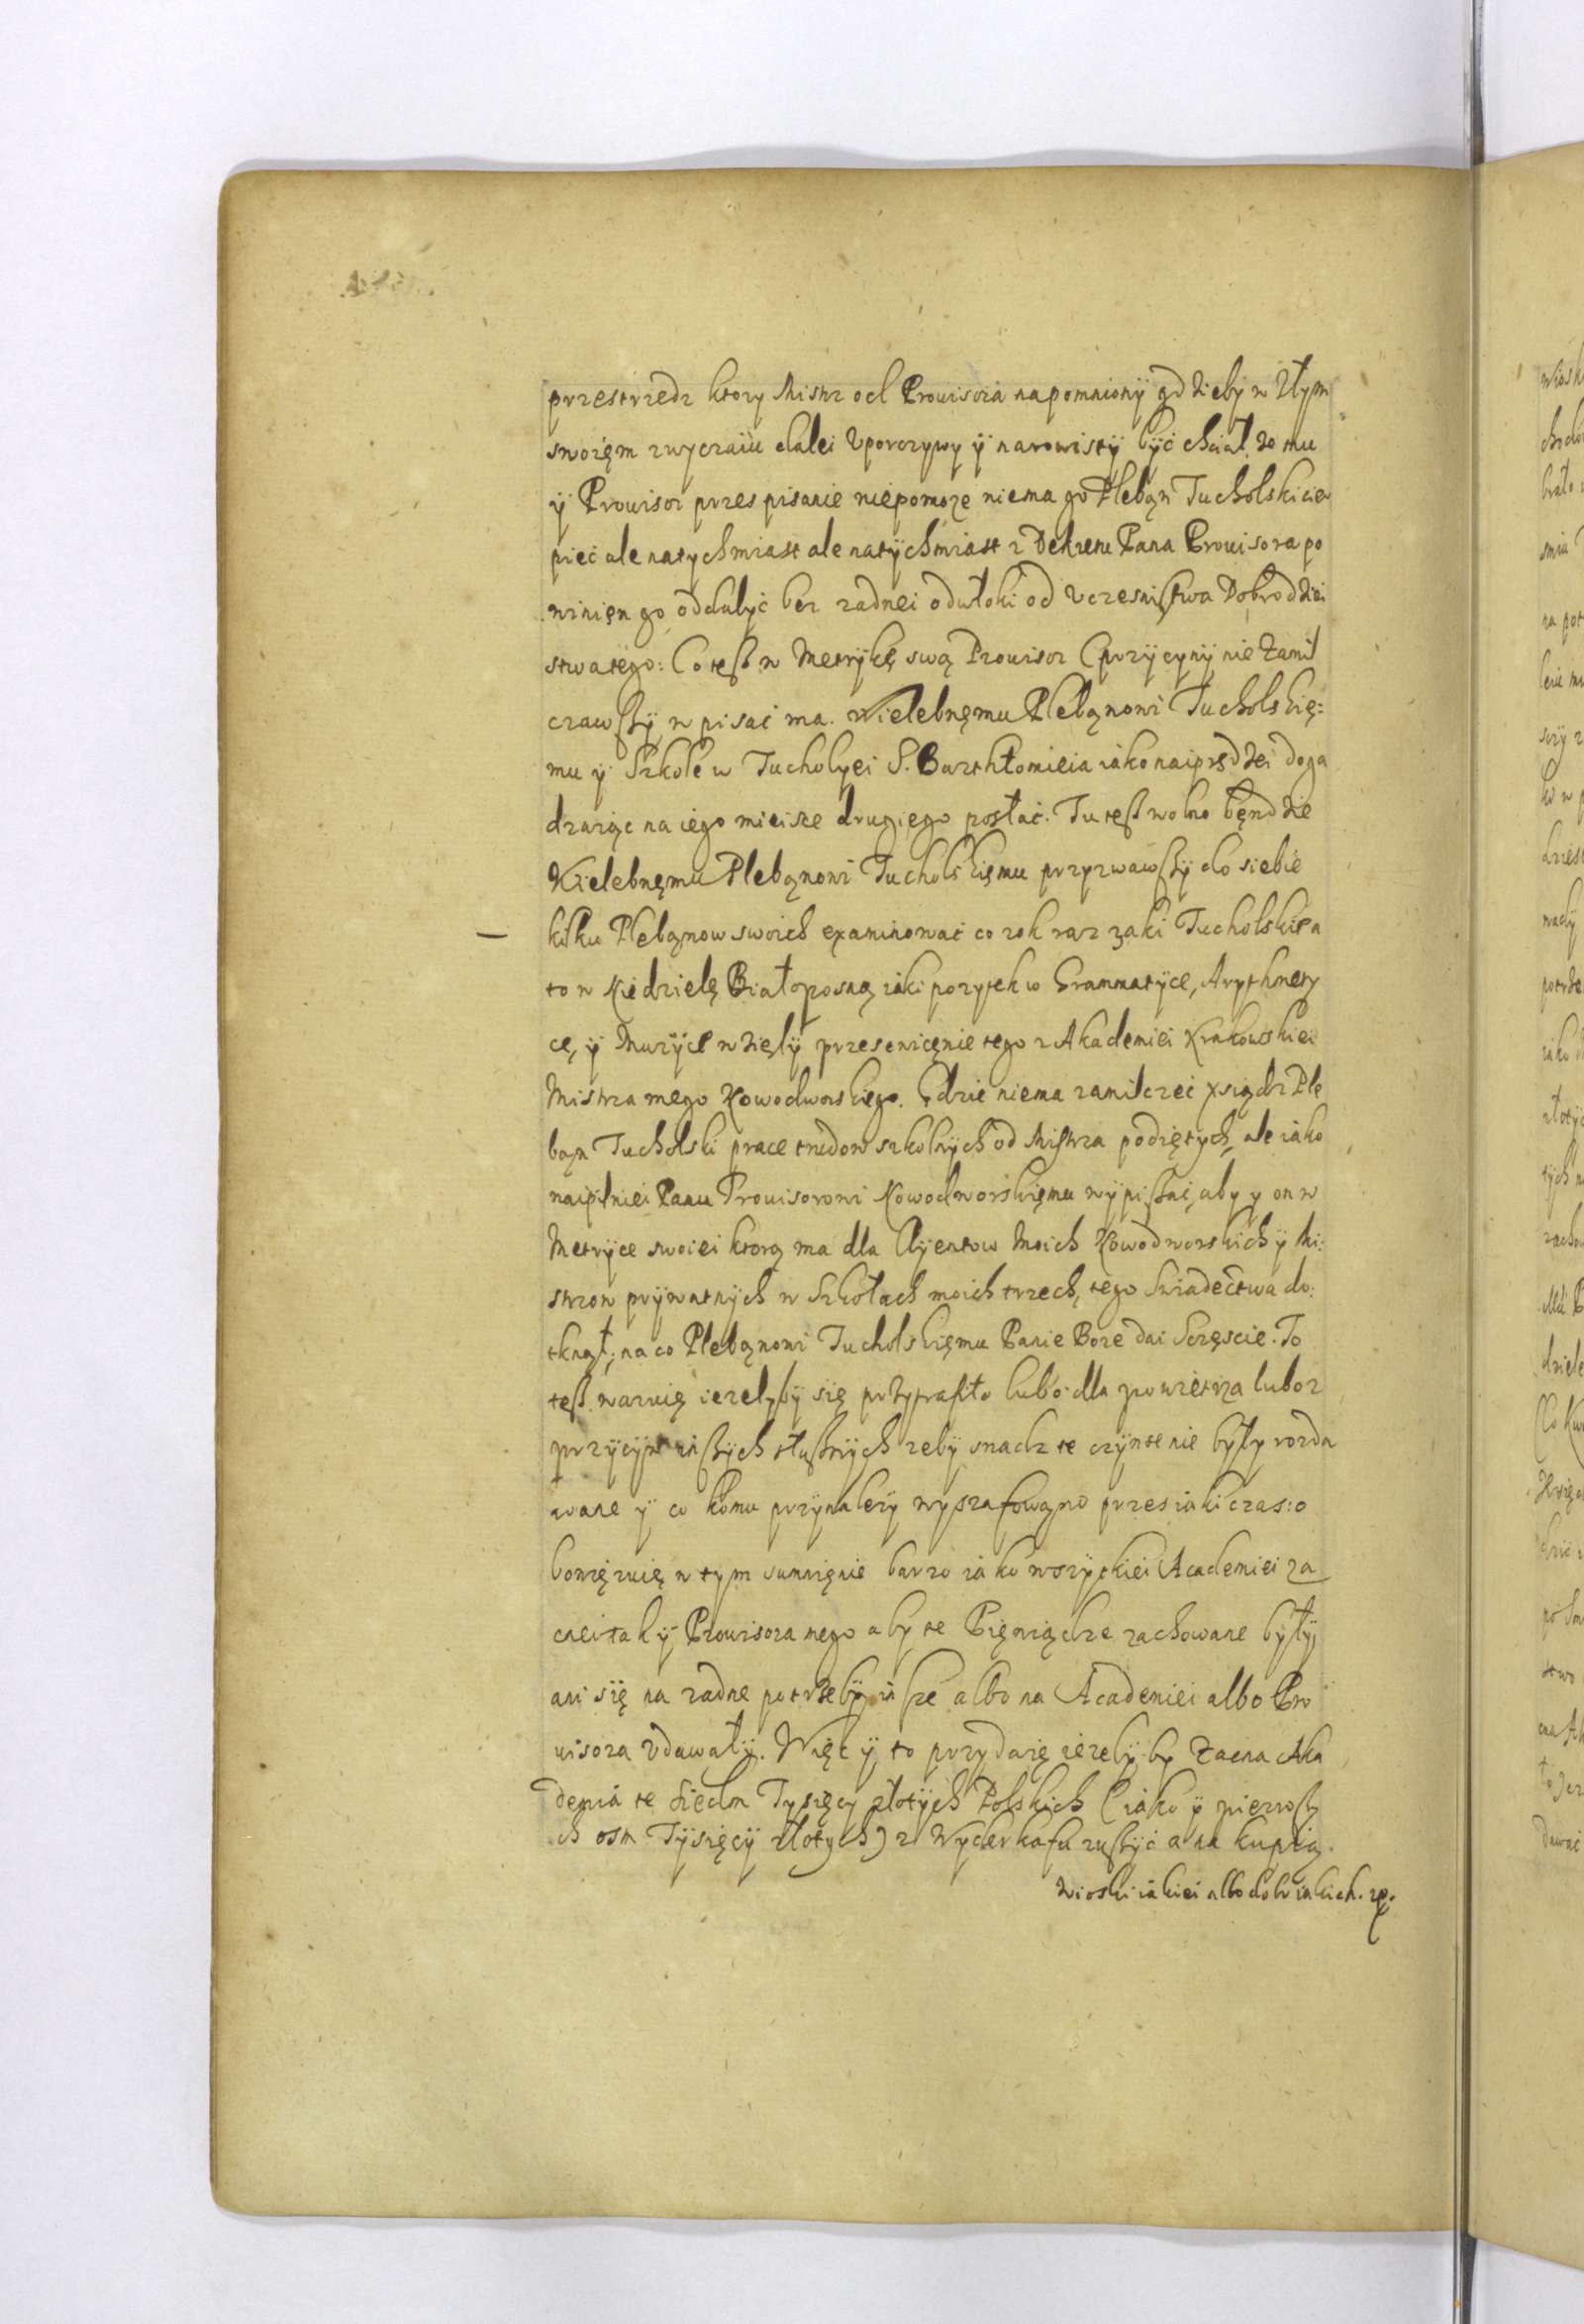 przestrzedz ktory Mistrz od Prouisora napomniony gdzieby w złym
swoięm zwyczaiu dalei vporczywy y narowisty być chciał, że mu
y Prouisor przes pisanie niepomoże niema go Plebąn Tucholski cier
pieć ale natychmiast ale natychmiast z Dekretu Pana Prouisora po
winięn go oddalyć bez żadnei odwłoki od vczesnistwa Dobrodziei
stwa tego: Co teß w Metrykę swą Prouisor (przycyny nie zamil
czawßy wpisać ma. Wielebnęmu Plebąnowi Tucholskię:
mu y Szkole w Tucholyei S. Barthłomieia iako naiprędzei doga
dzaiąc na iego mieisce drugiego posłać. Tu teß wolno będzie
Wielebnęmu Plebąnowi Tucholskięmu przyzwawßy do siebie
kilku Plebąnow swoich examinować co rok raz żaki Tucholskie a
to w Niedzielę Białoposną iaki pożytek w Grammatyce, Arythmety
cę, y Muzyce wzięly przes ćwicęnie tego z Akademiei Krakowskiei
Mistrza mego Nowodworskięgo. Gdzie niema zamilczeć xsiądz Ple
bąn Tucholski prace trudow szkolnych od Mistrza podiętych, ale iako
naipilniei Panu Prouisorowi Nowodworskięmu wypißać, aby y on w
Metryce swoiei ktorą ma dla Clyentow Moich Nowodworskich y Mi:
strzow prywatnych w Szkołach moich trzech, tego Swiadectwa do:
tknął, na co Plebąnowi Tucholskięmu Panie Boże dai Sczęscie. To
teß waruię ieżelyby się przytrafiło lubo dla powietrza lubo z
przycyn inßych słußnych żeby snadz te czynse nie były rozda
wane y co komu przynależy wyszafowąno przes iaki czas: o
bowięzuię w tym sumnięnie barzo iako wszyćkiei Academiei za
cnei tak y Prouisora mego aby te Pięniądze zachowane były,
ani się na żadne potrzeby inße albo na Academiei albo Pro
uisora vdawały. Więc y to przydaię ieżelyby Zacna Aka
demia te Siedm Tysięcy złotych Polskich (iako y pierwßy
ch osm Tysięcy złotych) z Wyderkafu rußyć a na kupią
wioski iakiei albo dobr iakich. rp.